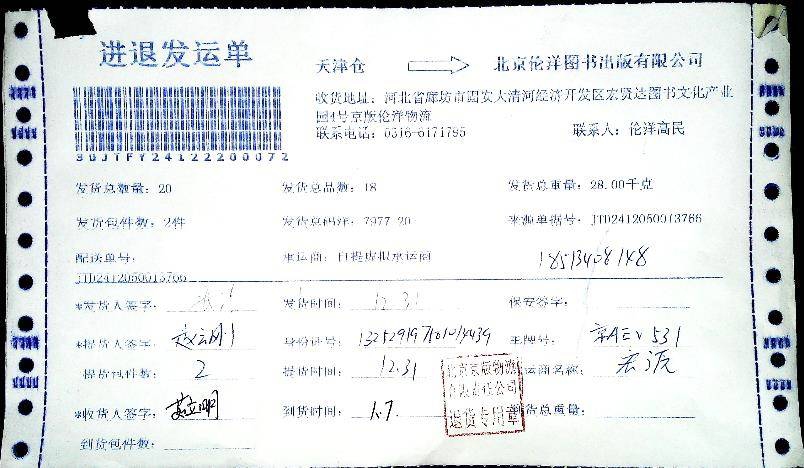 进退发运单
天津仓
北京伦洋图书出版有限公司
收货地址：河北省廊坊市固安大清河经济开发区宏贤达图书文化产业
园4号京版伦洋物流
联系电话：0316-6171795 联系人：伦洋高民
3GJTFY24122200072
发货总数量：20 发货总品数：18 发货总重量：28.00千克
发货包件数：2件 发货总码洋：7977.20 来源单据号：JTD2412050013766
配送单号： 承运商：自提虚拟承运商 18513408148
JTD2412050013766
*发货人签字： 发货时间：12.31 保安签字：
*提货人签字： 身份证号： 车牌号：
提货包件数：2 提货时间：12.31 承运商名称：宏源
*收货人签字： 到货时间：1.7. 到货总重量：
到货包件数：
北京京版物流
有限责任公司
退货专用章